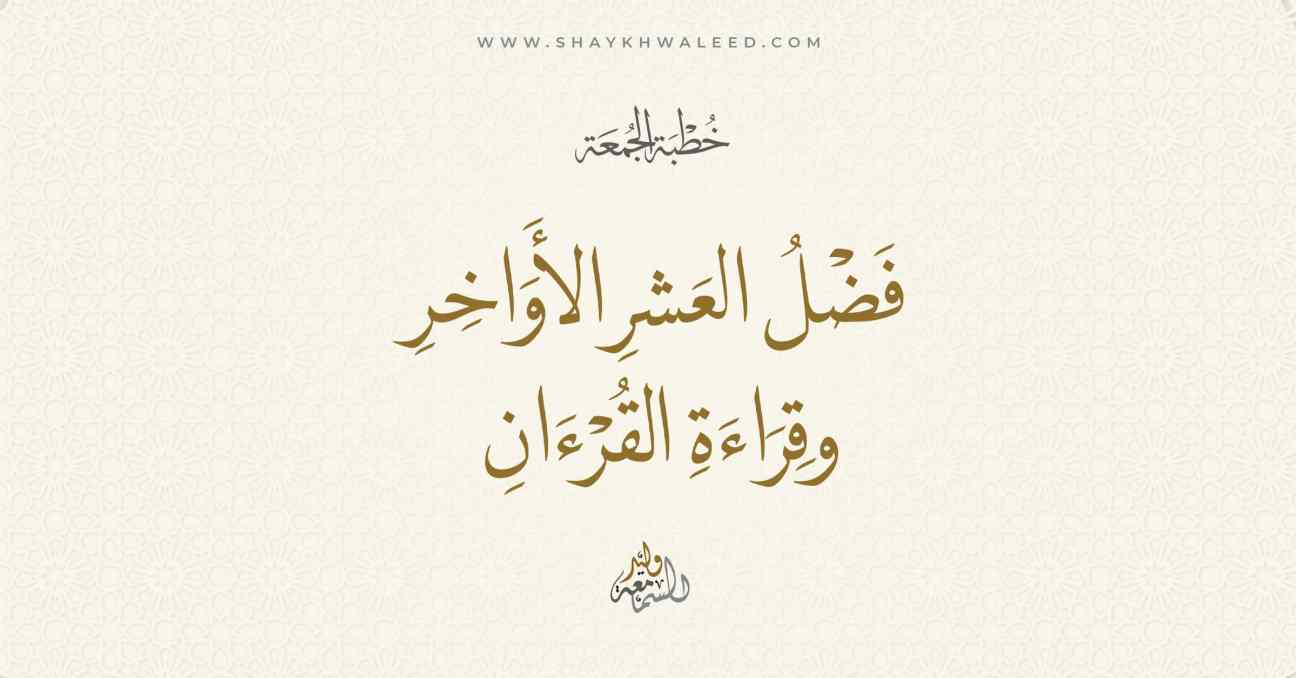 WWW.SHAYKHWALEED.COM
خُطْبَة الجُمعَة
فَضْلُ العَشرِ الأَوَاخِرِ
وقِرَاءَةِ القُرْءَانِ
وليد
السمامعة